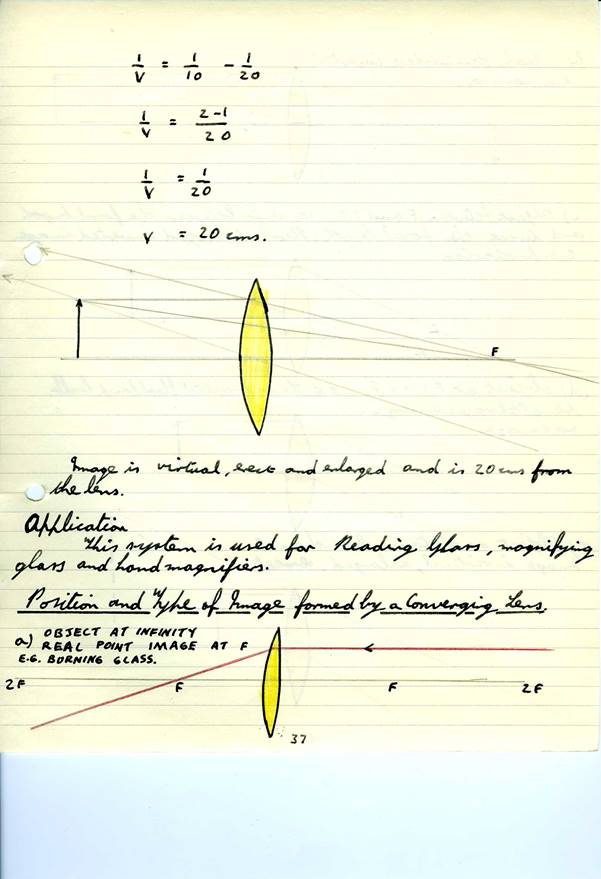 1/v = 1/10 - 1/20
1/v = 2-1/20
1/v = 1/20
v = 20 cms.
F
Image is virtual, erect and enlarged and is 20 cms from
the lens.
Application
This system is used for Reading Glass, magnifying
glass and hand magnifiers.
Position and Type of Image formed by a Converging Lens.
a) OBJECT AT INFINITY
REAL POINT IMAGE AT F
E.G. BURNING GLASS.
2F F F 2F
37